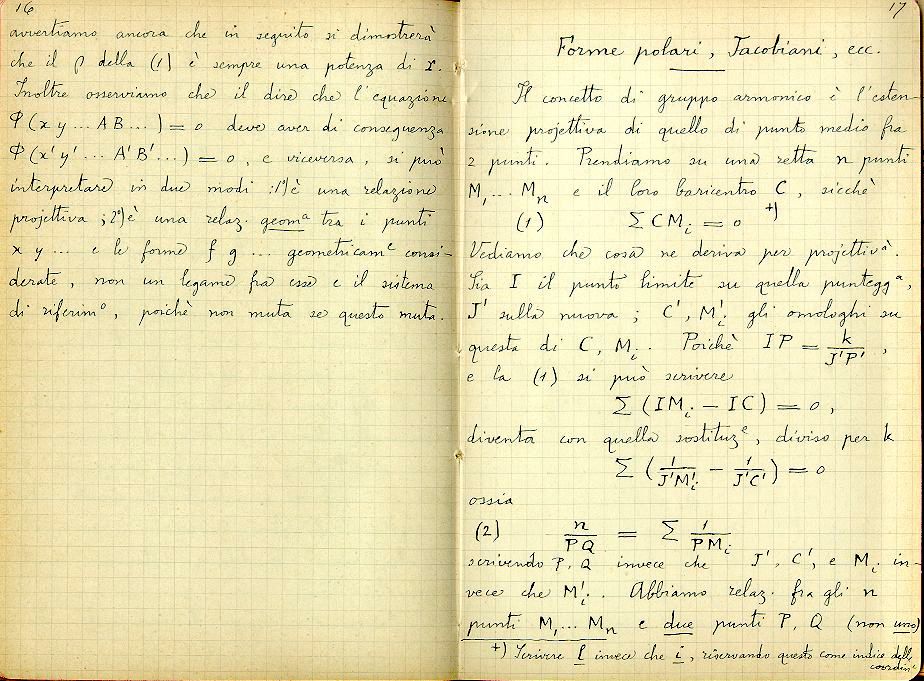 16
avvertiamo ancora che in seguito si dimostrerà
che il ρ della (1) è sempre una potenza di r.
Inoltre osserviamo che il dire che l'equazione
Φ(x y ... A B ...) = 0 deve aver di conseguenza
Φ(x' y' ... A' B' ...) = 0, e viceversa, si può
interpretare in due modi: 1°) è una relazione
projettiva; 2°) è una relaz. geomᵃ tra i punti
x y ... e le forme f g ... geometricamᵉ consi-
derate, non un legame fra esse e il sistema
di riferimᵒ, poichè non muta se questo muta.
17
Forme polari, Jacobiani, ecc.
Il concetto di gruppo armonico è l'esten-
sione projettiva di quello di punto medio fra
2 punti. Prendiamo su una retta n punti
M₁ ... Mₙ e il loro baricentro C, sicchè
(1) Σ CMᵢ = 0 +)
Vediamo che cosa ne deriva per projettivᵃ.
Sia I il punto limite su quella punteggᵃ,
J' sulla nuova; C', M'ᵢ gli omologhi su
questa di C, Mᵢ. Poichè IP = k/J'P',
e la (1) si può scrivere
Σ (IMᵢ − IC) = 0,
diventa con quella sostituzᵉ, diviso per k
Σ (1/J'M'ᵢ − 1/J'C') = 0
ossia
(2) n/PQ = Σ 1/PMᵢ
scrivendo P, Q invece che J', C', e Mᵢ in-
vece che M'ᵢ. Abbiamo relaz. fra gli n
punti M₁ ... Mₙ e due punti P, Q (non uno)
+) Scrivere l invece che i, riservando questo come indice delle
coordinᵉ